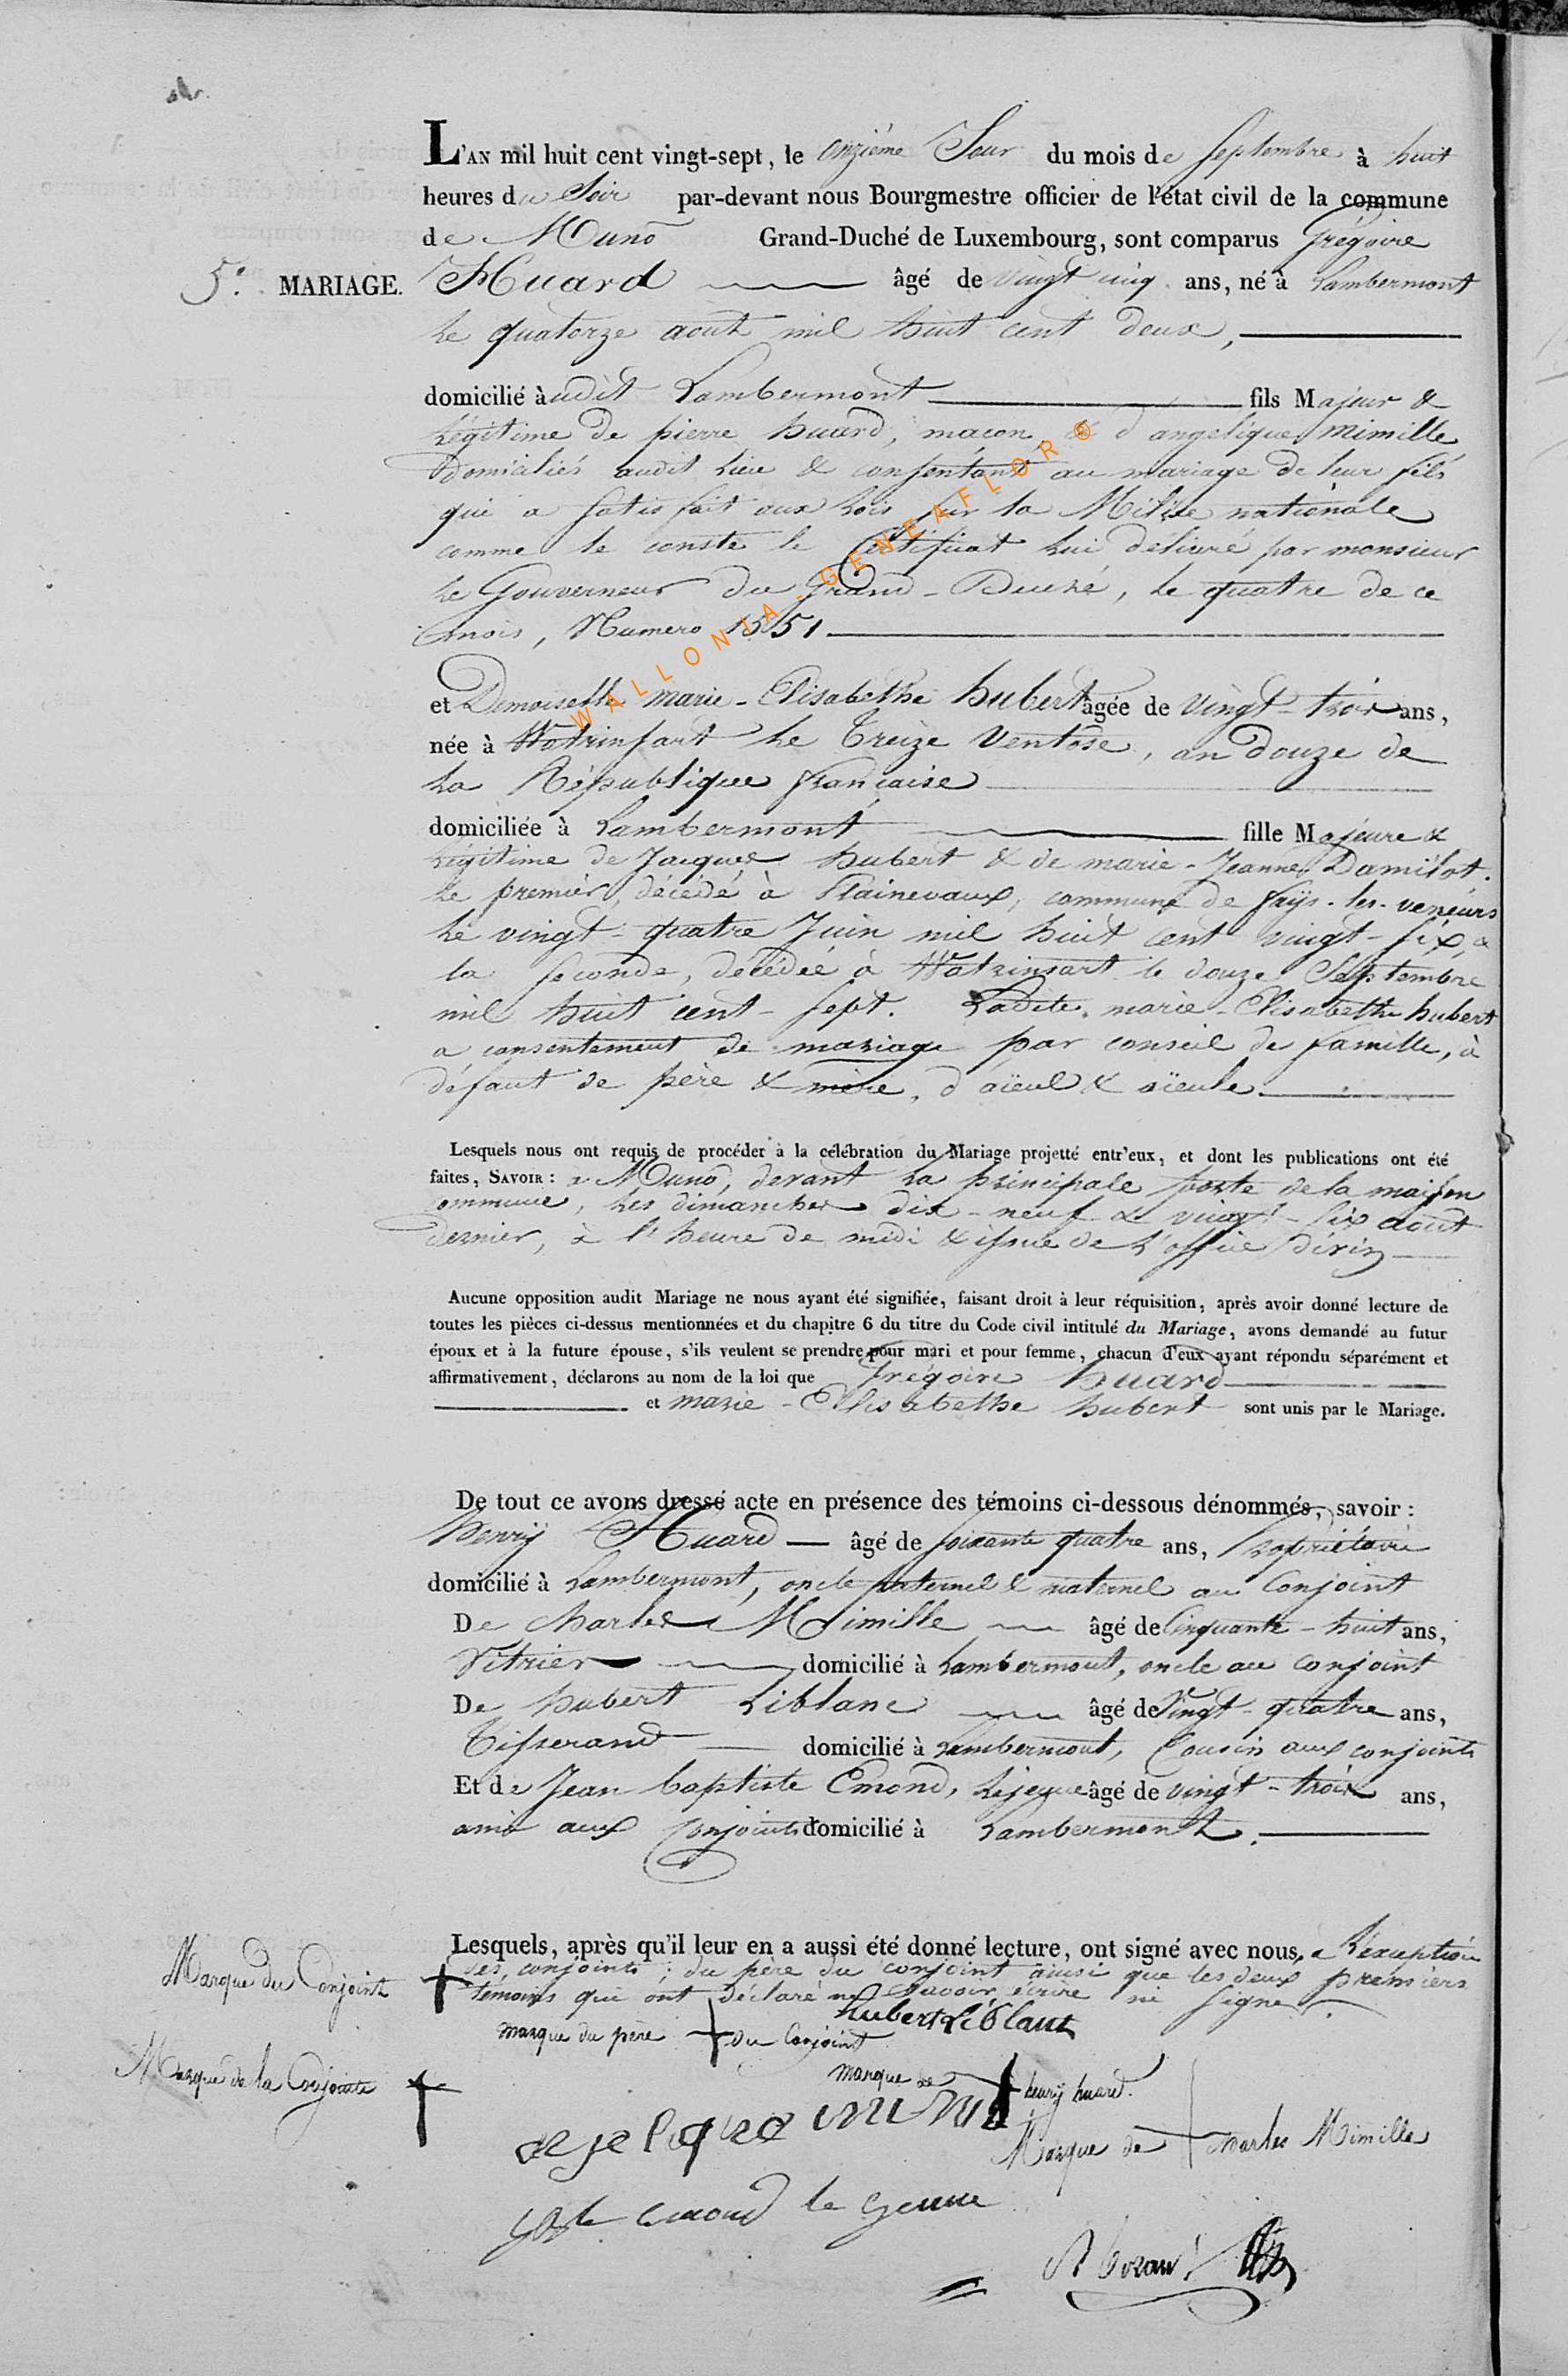 L'AN mil huit cent vingt-sept, le onziéme Jour du mois de Septembre à huit
heures du Soir par-devant nous Bourgmestre officier de l'état civil de la commune
de Muno Grand-Duché de Luxembourg, sont comparus Grégoire
5.e MARIAGE. Huard âgé de vingt cinq ans, né à Lambermont
le quatorze aout mil huit cent deux,
domicilié àudit Lambermont fils Majeur &
légitime de pierre huard, maçon, & d'angelique Mimille
domiciliés audit lieu & consentant au mariage de leur fils
qui a satisfait aux lois sur la Milice nationale
comme le conste le Certificat lui délivré par monsieur
le Gouverneur du Grand-Duché, le quatre de ce
mois, Numero 1551
WALLONIA-GENEAFLOR ©
et Demoiselle marie-Elisabethe hubert âgée de vingt-trois ans,
née à Watrinsart le Treize Ventôse, an douze de
la République française
domiciliée à Lambermont fille Majeure &
légitime de Jacques hubert & de marie-Jeanne Damilot.
le premier, décédé à Plainevaux, commune de fays-les-veneurs
le vingt-quatre Juin mil huit cent vingt-six, &
la seconde, décédée à Watrinsart le douze Septembre
mil huit cent-sept. Ladite marie-Elisabethe hubert
a consentement de mariage par conseil de famille, à
défaut de père & mère, d'aïeul & aïeule.
Lesquels nous ont requis de procéder à la célébration du Mariage projetté entr'eux, et dont les publications ont été
faites, SAVOIR : à Muno, devant la principale porte de la maison
commune, les dimanches dix-neuf & vingt-six août
dernier, à l'heure de midi & issue de l'office divin
Aucune opposition audit Mariage ne nous ayant été signifiée, faisant droit à leur réquisition, après avoir donné lecture de
toutes les pièces ci-dessus mentionnées et du chapitre 6 du titre du Code civil intitulé du Mariage, avons demandé au futur
époux et à la future épouse, s'ils veulent se prendre pour mari et pour femme, chacun d'eux ayant répondu séparément et
affirmativement, déclarons au nom de la loi que Grégoire huard
et marie-Elisabethe hubert sont unis par le Mariage.
De tout ce avons dressé acte en présence des témoins ci-dessous dénommés, savoir :
henrÿ Huard âgé de soixante quatre ans, Propriétaire
domicilié à Lambermont, oncle paternel & maternel au Conjoint
De charles Mimille âgé de Cinquante-huit ans,
Vitrier domicilié à Lambermont, oncle au conjoint
De hubert Liblanc âgé de Vingt-quatre ans,
Tisserand domicilié à Lambermont, Cousin aux conjoints
Et de Jean baptiste Emond, lejeune âgé de vingt-trois ans,
ami aux Conjoints domicilié à Lambermont.
Lesquels, après qu'il leur en a aussi été donné lecture, ont signé avec nous, à l'exception
des conjoints ; du père du conjoint ainsi que les deux premiers
témoins qui ont déclaré ne savoir écrire ni signer.
Marque du Conjoint
hubert Léblanc
marque du père du Conjoint
Marque de la Conjointe
marque de henrÿ huard.
Marque de charles Mimille
emond le jeune